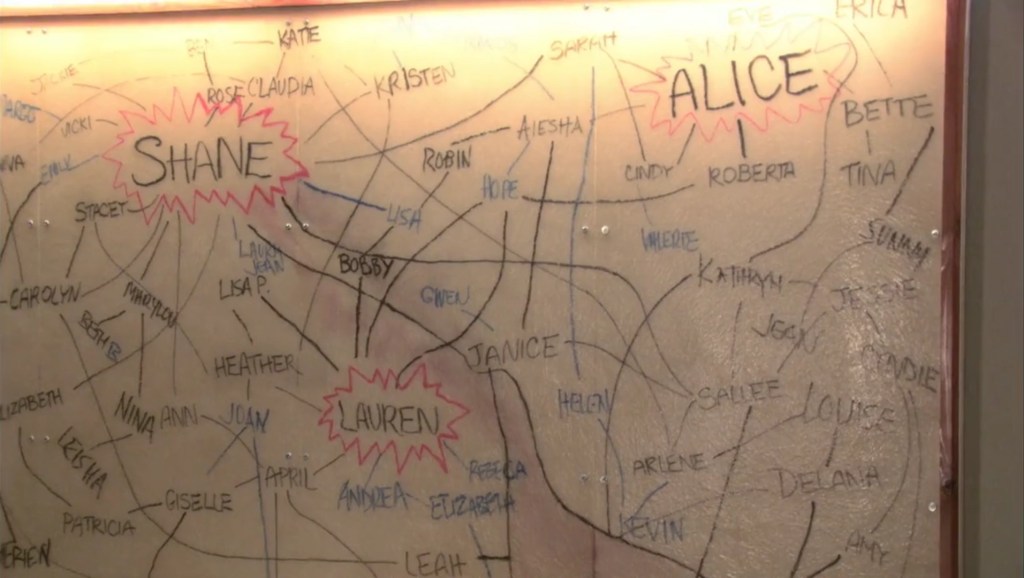 ERICA
KATIE
SARAH
ROSE
CLAUDIA
KRISTEN
ALICE
BETTE
VICKI
AIESHA
SHANE
ROBIN
CINDY
ROBERTA
TINA
EMILY
HOPE
STACEY
LISA
VALERIE
LAURA
JEAN
BOBBY
KATHRYN
CAROLYN
MARYLOU
LISA P.
GWEN
JESSIE
BETH B
JEAN
HEATHER
JANICE
SALLEE
LIZABETH
NINA
ANN
JOAN
LAUREN
HELEN
LOUISE
LEISHA
ARLENE
DELANA
APRIL
REBECCA
GISELLE
ANDREA
ELIZABETH
PATRICIA
KEVIN
AMY
LEAH